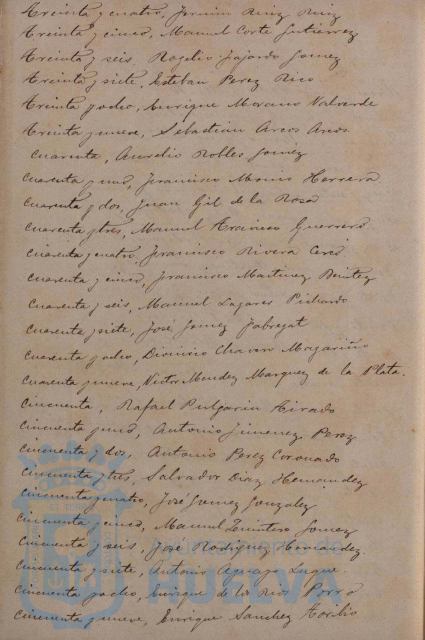 Treinta y cuatro, Fermin Ruiz Ruiz
Treinta y cinco, Manuel Corte Gutierrez
Treinta y seis, Rogelio Fajardo Gomez
Treinta y siete, Esteban Perez Rico
Treinta y ocho, Enrique Moreno Valverde
Treinta y nueve, Sebastian Arcos Arcos
Cuarenta, Aurelio Robles Gomez
Cuarenta y uno, Francisco Herrera
Cuarenta y dos, Juan Gil de la Rosa
Cuarenta y tres, Manuel Guerrero
Cuarenta y cuatro, Francisco Rivera
Cuarenta y cinco, Francisco Martinez Benitez
Cuarenta y seis, Manuel Lagares Pichardo
Cuarenta y siete, José Gomez Fabregat
Cuarenta y ocho, Dionisio Chavero Magariño
Cuarenta y nueve, Victor Mendez Marquez de la Plata.
Cincuenta, Rafael Pulgarin Tirado
Cincuenta y uno, Antonio Jimenez Perez
Cincuenta y dos, Antonio Perez Coronado
Cincuenta y tres, Salvador Diaz Hernandez
Cincuenta y cuatro, José Gomez Gonzalez
Cincuenta y cinco, Manuel Quintero Gomez
Cincuenta y seis, José Rodriguez Hernandez
Cincuenta y siete, Antonio Luque
Cincuenta y ocho, Enrique de los Rios
Cincuenta y nueve, Enrique Sanchez
HUELVA